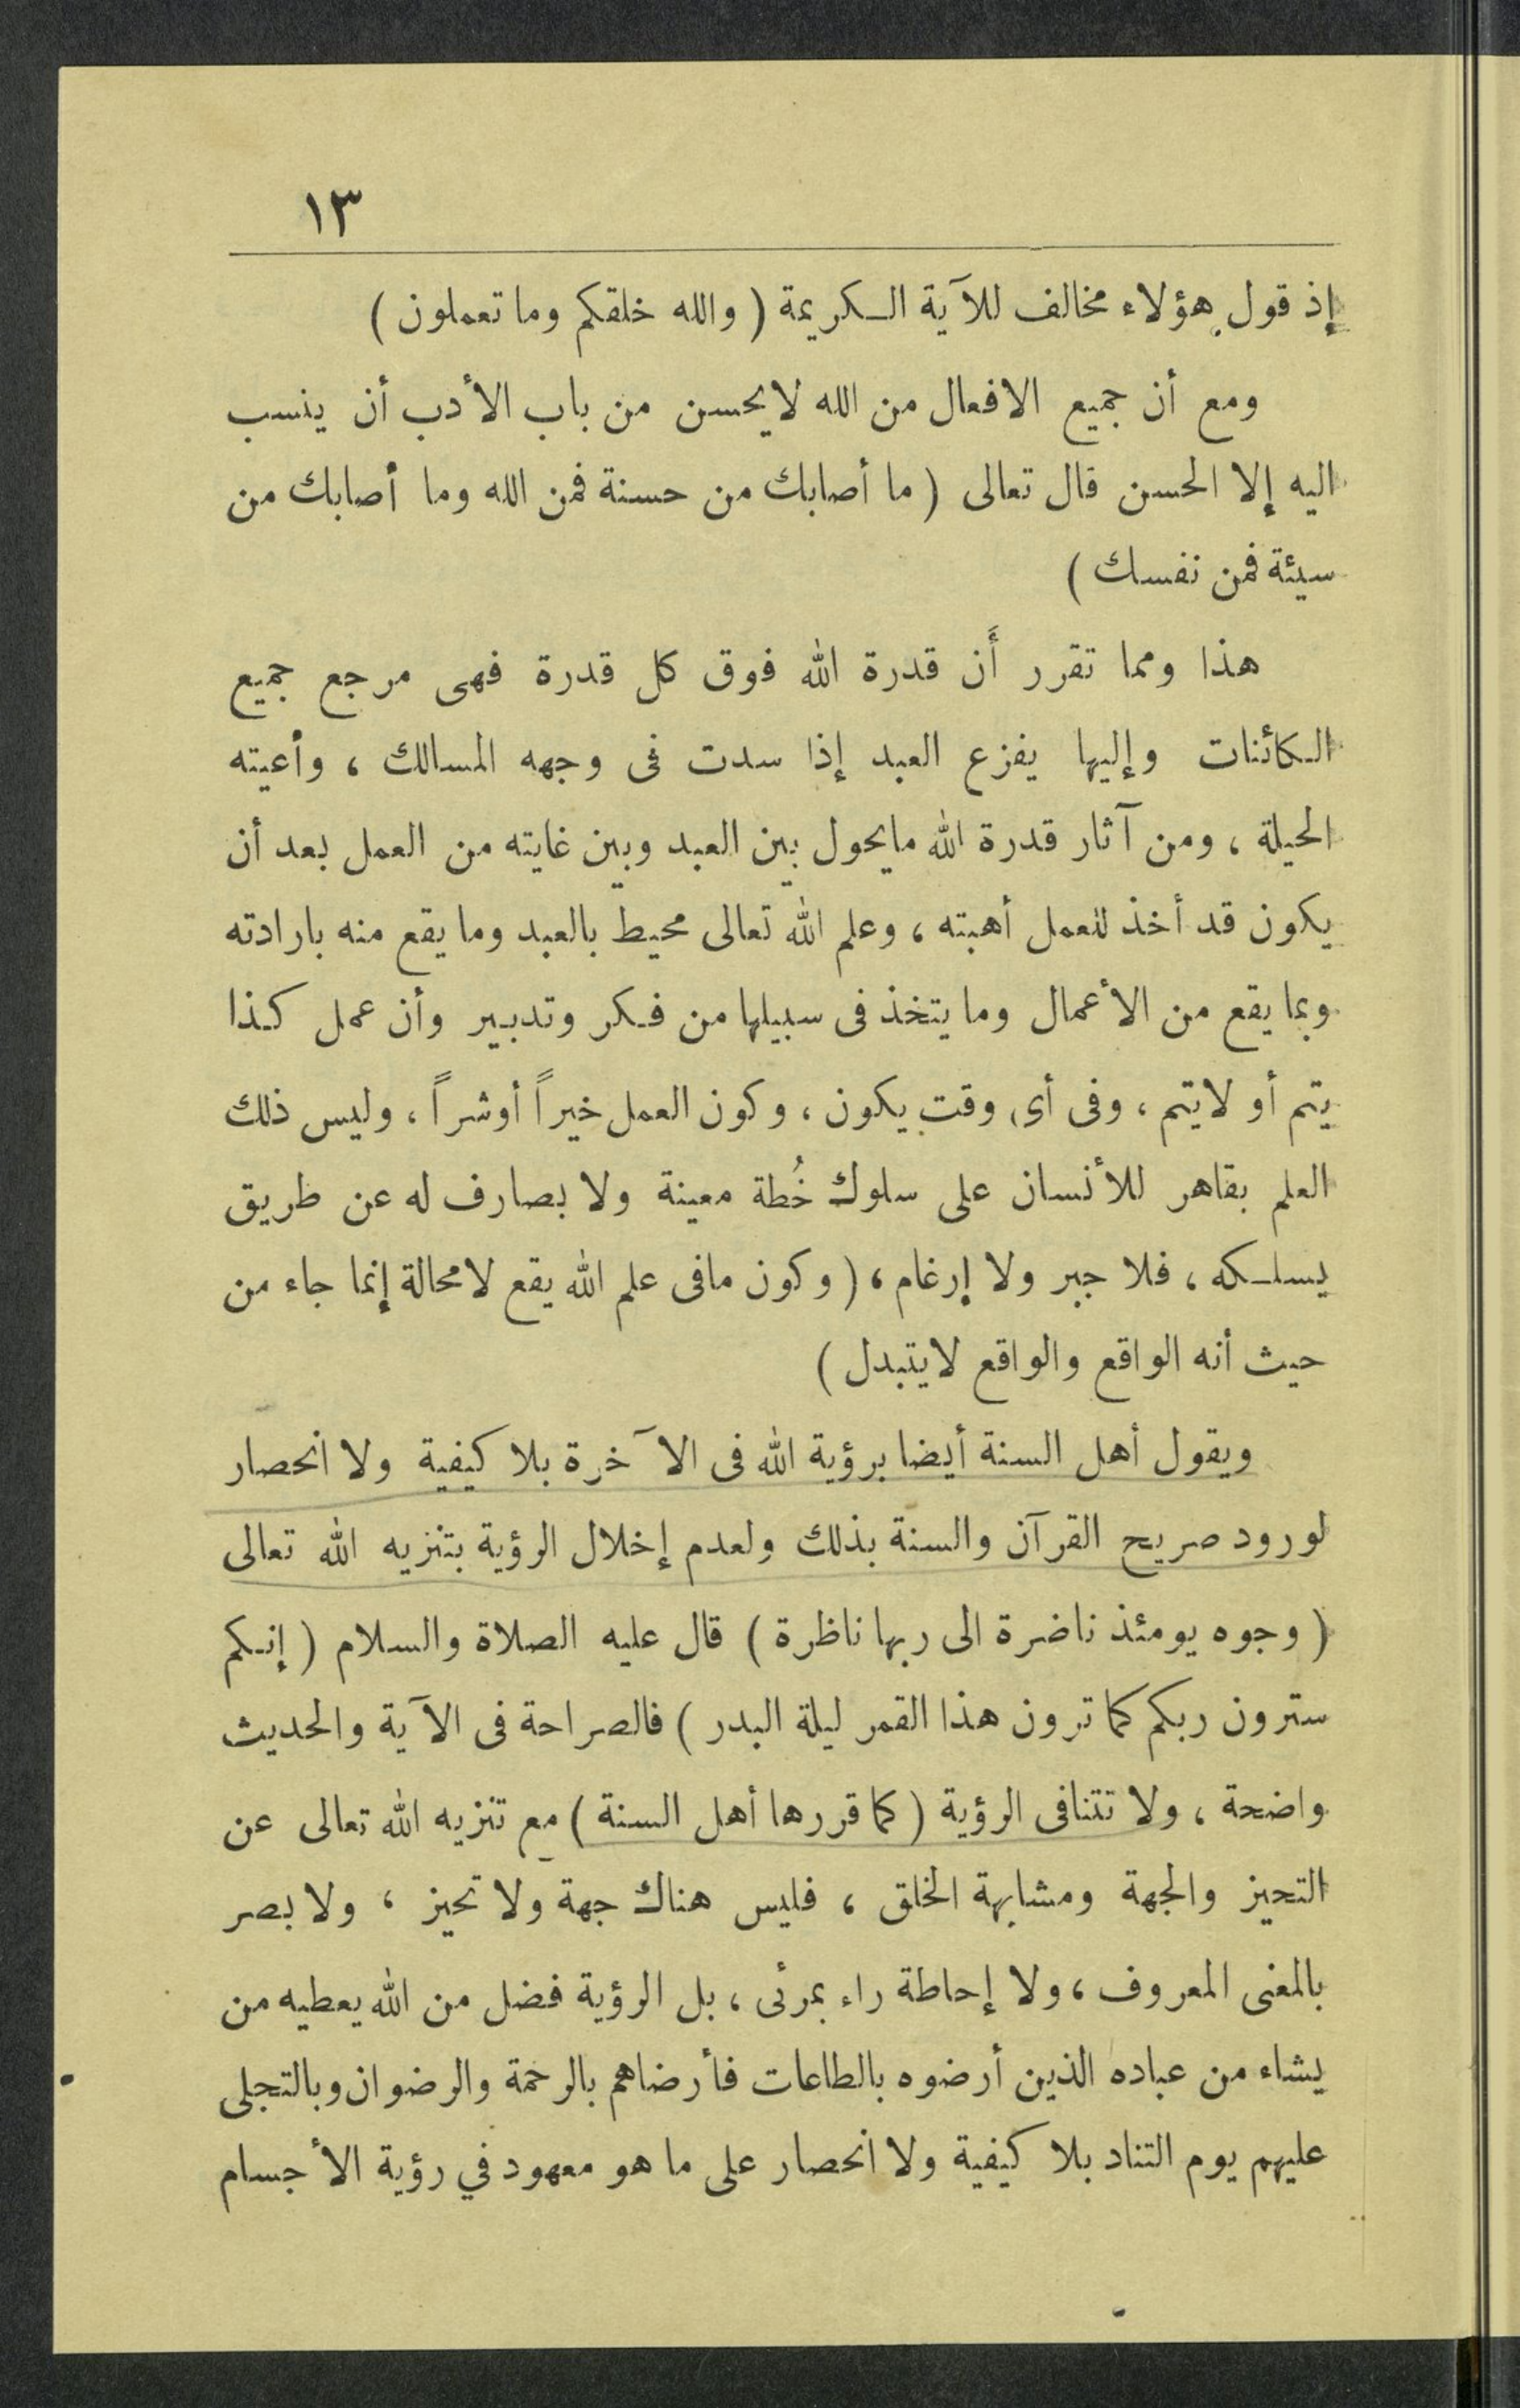 ١٣
إذ قول هؤلاء مخالف للآية الكريمة ( والله خلقكم وما تعملون )
ومع أن جميع الافعال من الله لايحسن من باب الأدب أن ينسب
اليه إلا الحسن قال تعالى ( ما أصابك من حسنة فمن الله وما أصابك من
سيئة فمن نفسك )
هذا ومما تقرر أَن قدرة الله فوق كل قدرة فهى مرجع جميع
الكائنات وإليها يفزع العبد إذا سدت فى وجهه المسالك ، وأعيته
الحيلة ، ومن آثار قدرة الله مايحول بين العبد وبين غايته من العمل بعد أن
يكون قد أخذ للعمل أهبته ، وعلم الله تعالى محيط بالعبد وما يقع منه بارادته
وبما يقع من الأعمال وما يتخذ فى سبيلها من فكر وتدبير وأن عمل كذا
يتم أو لايتم ، وفى أى وقت يكون ، وكون العمل خيراً أوشراً ، وليس ذلك
العلم بقاهر للأنسان على سلوك خُطة معينة ولا بصارف له عن طريق
يسلكه ، فلا جبر ولا إرغام ، ( وكون مافى علم الله يقع لامحالة إنما جاء من
حيث أنه الواقع والواقع لايتبدل )
ويقول أهل السنة أيضا برؤية الله فى الآخرة بلا كيفية ولا انحصار
لورود صريح القرآن والسنة بذلك ولعدم إخلال الرؤية بتنزيه الله تعالى
( وجوه يومئذ ناضرة الى ربها ناظرة ) قال عليه الصلاة والسلام ( إنكم
سترون ربكم كما ترون هذا القمر ليلة البدر ) فالصراحة فى الآية والحديث
واضحة ، ولا تتنافى الرؤية ( كما قررها أهل السنة ) مع تنزيه الله تعالى عن
التحيز والجهة ومشابهة الخلق ، فليس هناك جهة ولا تحيز ، ولا بصر
بالمعنى المعروف ، ولا إحاطة راء بمرئى ، بل الرؤية فضل من الله يعطيه من
يشاء من عباده الذين أرضوه بالطاعات فأرضاهم بالرحمة والرضوان وبالتجلى
عليهم يوم التناد بلا كيفية ولا انحصار على ما هو معهود في رؤية الأجسام